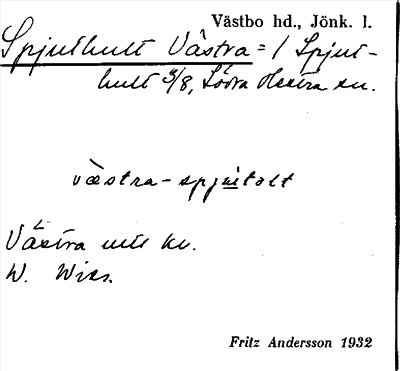 Västbo hd., Jönk. l.
Spjuthult Västra = 1 Spjut-
hult 3/8, Södra Hestra sn.
væstra-spjuitolt
Västra
W.
Fritz Andersson 1932